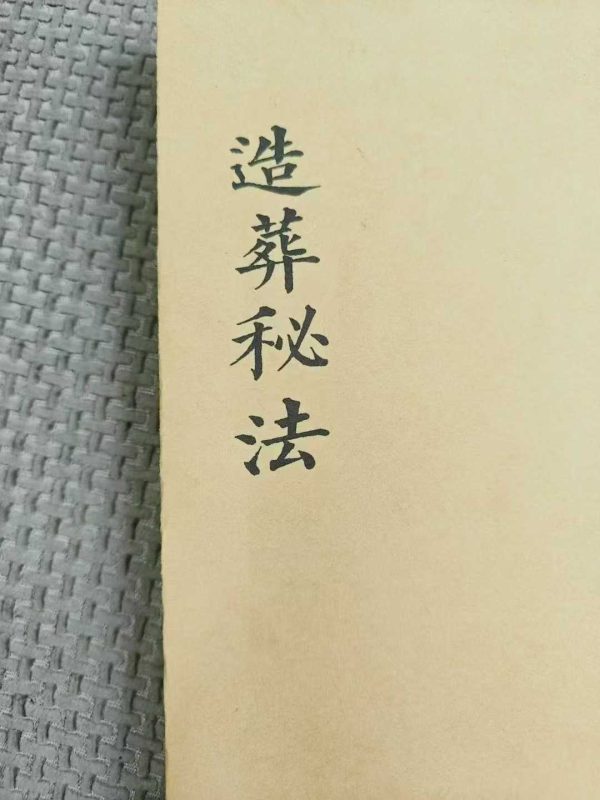 造葬秘法